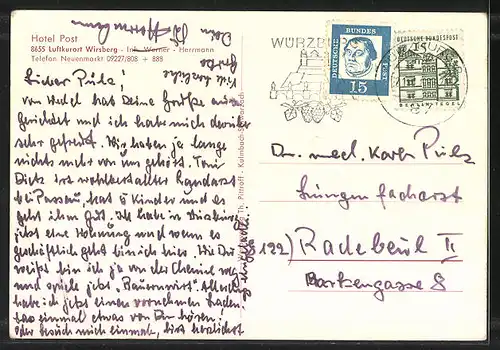 Hotel Post
8655 Luftkurort Wirsberg - Inh. Werner - Herrmann
Telefon Neuenmarkt 09227/808 + 888
Lieber Pülz!
von Wedel hat Deine Grüße aus-
gerichtet und ich habe mich darüber
sehr gefreut. Wir haben ja lange
nichts mehr von uns gehört. Toni
Dietz ist wohlbestallter Landarzt
bei Passau, hat 5 Kinder und es
geht ihm gut. Ich habe in Würzburg
jetzt eine Wohnung und wenn es
geschäftlich geht bin ich hier. Wie Du
weißt bin ich ja von der Chemie weg
und spiele jetzt "Bauernwirt". Allerdings
habe ich jetzt einen vornehmen Laden.
Laß einmal etwas von Dir hören!
oder besuch mich einmal, bist herzlichst
eingeladen!
Viele herzliche
Grüße
Dein
Herrmann
Th. Pittroff - Kulmbach
WÜRZBURG
DEUTSCHE BUNDESPOST
15
DEUTSCHE BUNDESPOST
BERLIN-TEGEL
Dr. med. Karl Pülz
Lungenfacharzt
(8122) Radebeul II
Barkengasse 8